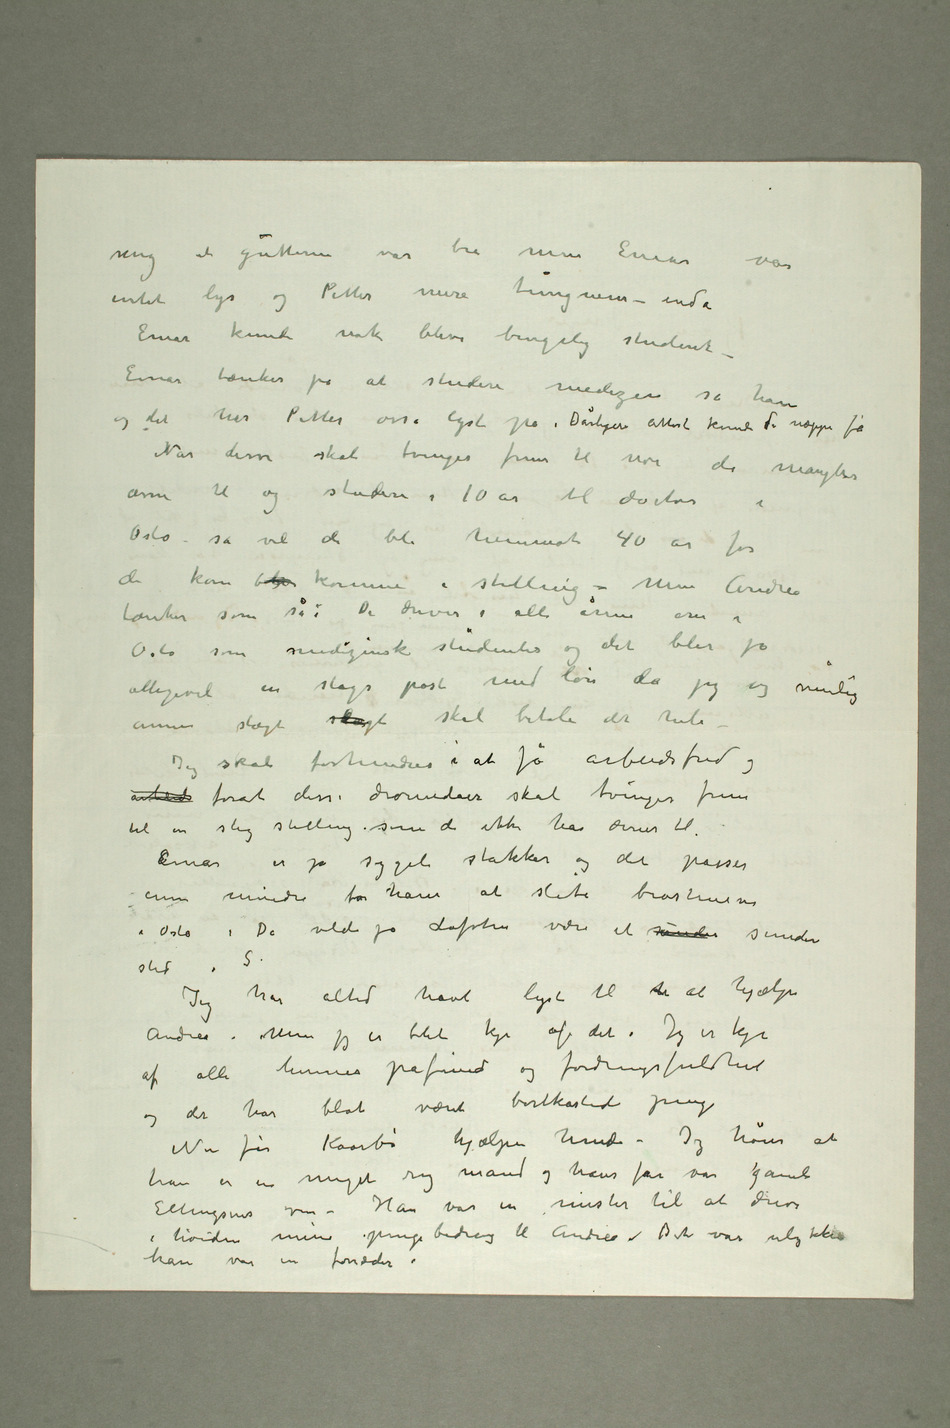 seng at gutterne var bra men Einar var
intet lys og Petter mere tungnem – enda
Einar kunde nok blive brugelig studerit –
Einar tænker på at studere medezin sa han
og det har Petter osså lyst på. Dårligere attest kunde de næppe få
Når disse skal tvinges frem til noe de mangler
ævne til og studere i 10 år til doctor i
Oslo – så vil de bli henimot 40 år før
de kom komme i stilling – Men Andrea
tænker som så: De driver i alle årene om i
Oslo som medizinsk studenter og det blir jo
alligevel en slags post med løn da jeg og muligens
annen slægt skal betale det hele –
Jeg skal forhindres i at få arbeidsfred og
arbeids forat disse dromedarer skal tvinges frem
til en slig stilling som de ikke har ævner til.
Einar er jo sygelig stakkar og det passer
enn mindre for ham at slite brostenene
i Oslo. Da vilde jo Lofoten være et sundere
sted.
Jeg har altid havt lyst til at hjælpe
Andrea. Men jeg er blit kje af det. Jeg er kje
af alle hennes påfund og fordringsfuldhet
og det har blot været bortkastede penge
Nu får Kaarbø hjælpe hende – Jeg hører at
han er en meget rig mand og hans far var gamle
Ellingsens ven – Han var en mester til at drive
i høiden mine pengebidrag til Andrea. Det var ulykke
han var en forræder.